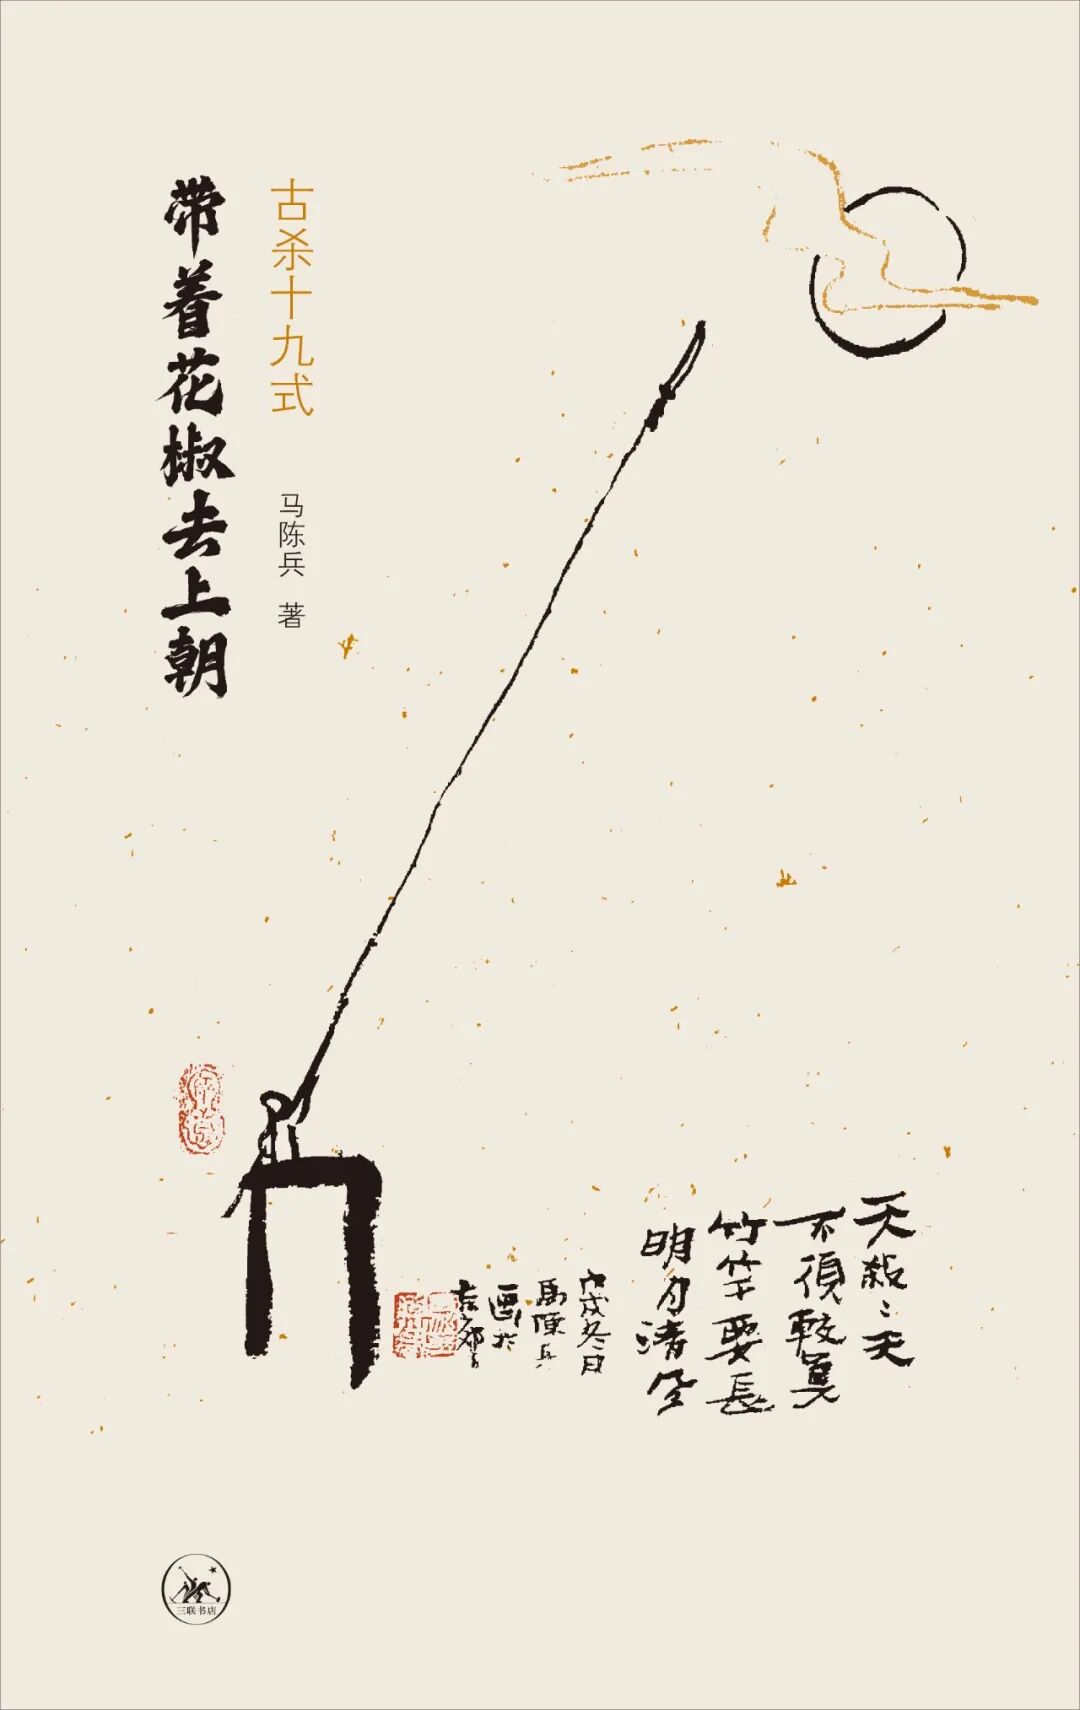 带着花椒去上朝
古杀十九式
马陈兵 著
天殺：天
不須較真
竹竿要長
明月清
戊戌冬日
馬陳兵
画於
三联书店